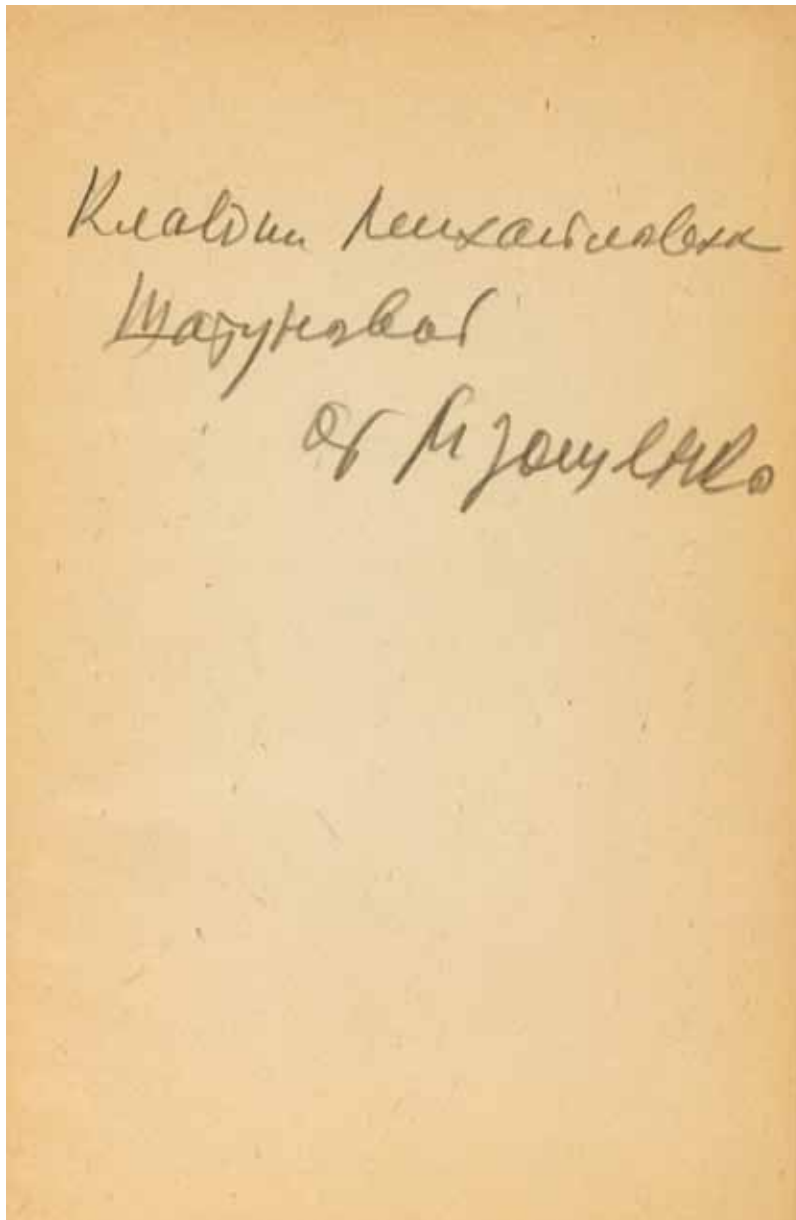 Клавдии Михайловне
Шатуновой
от М Зощенко